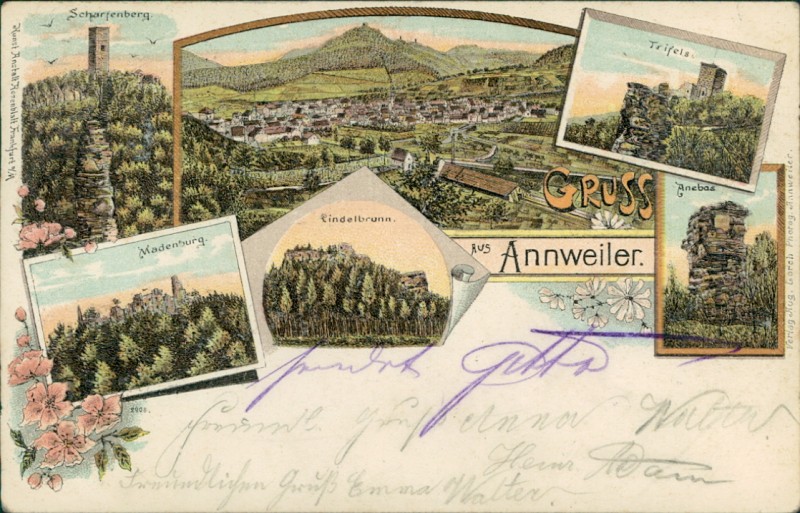 Scharfenberg.
Trifels.
Kunst Anstalt Rosenblatt Frankfurt a/M.
GRUSS
AUS Annweiler.
Anebos
Lindelbrunn.
Madenburg.
Verlag Aug. Lorch Photog. Annweiler.
2006.
sendet
Freundl. Gruß Anna Walter
Heinr. Adam
Freundlichen Gruß Emma Walter.